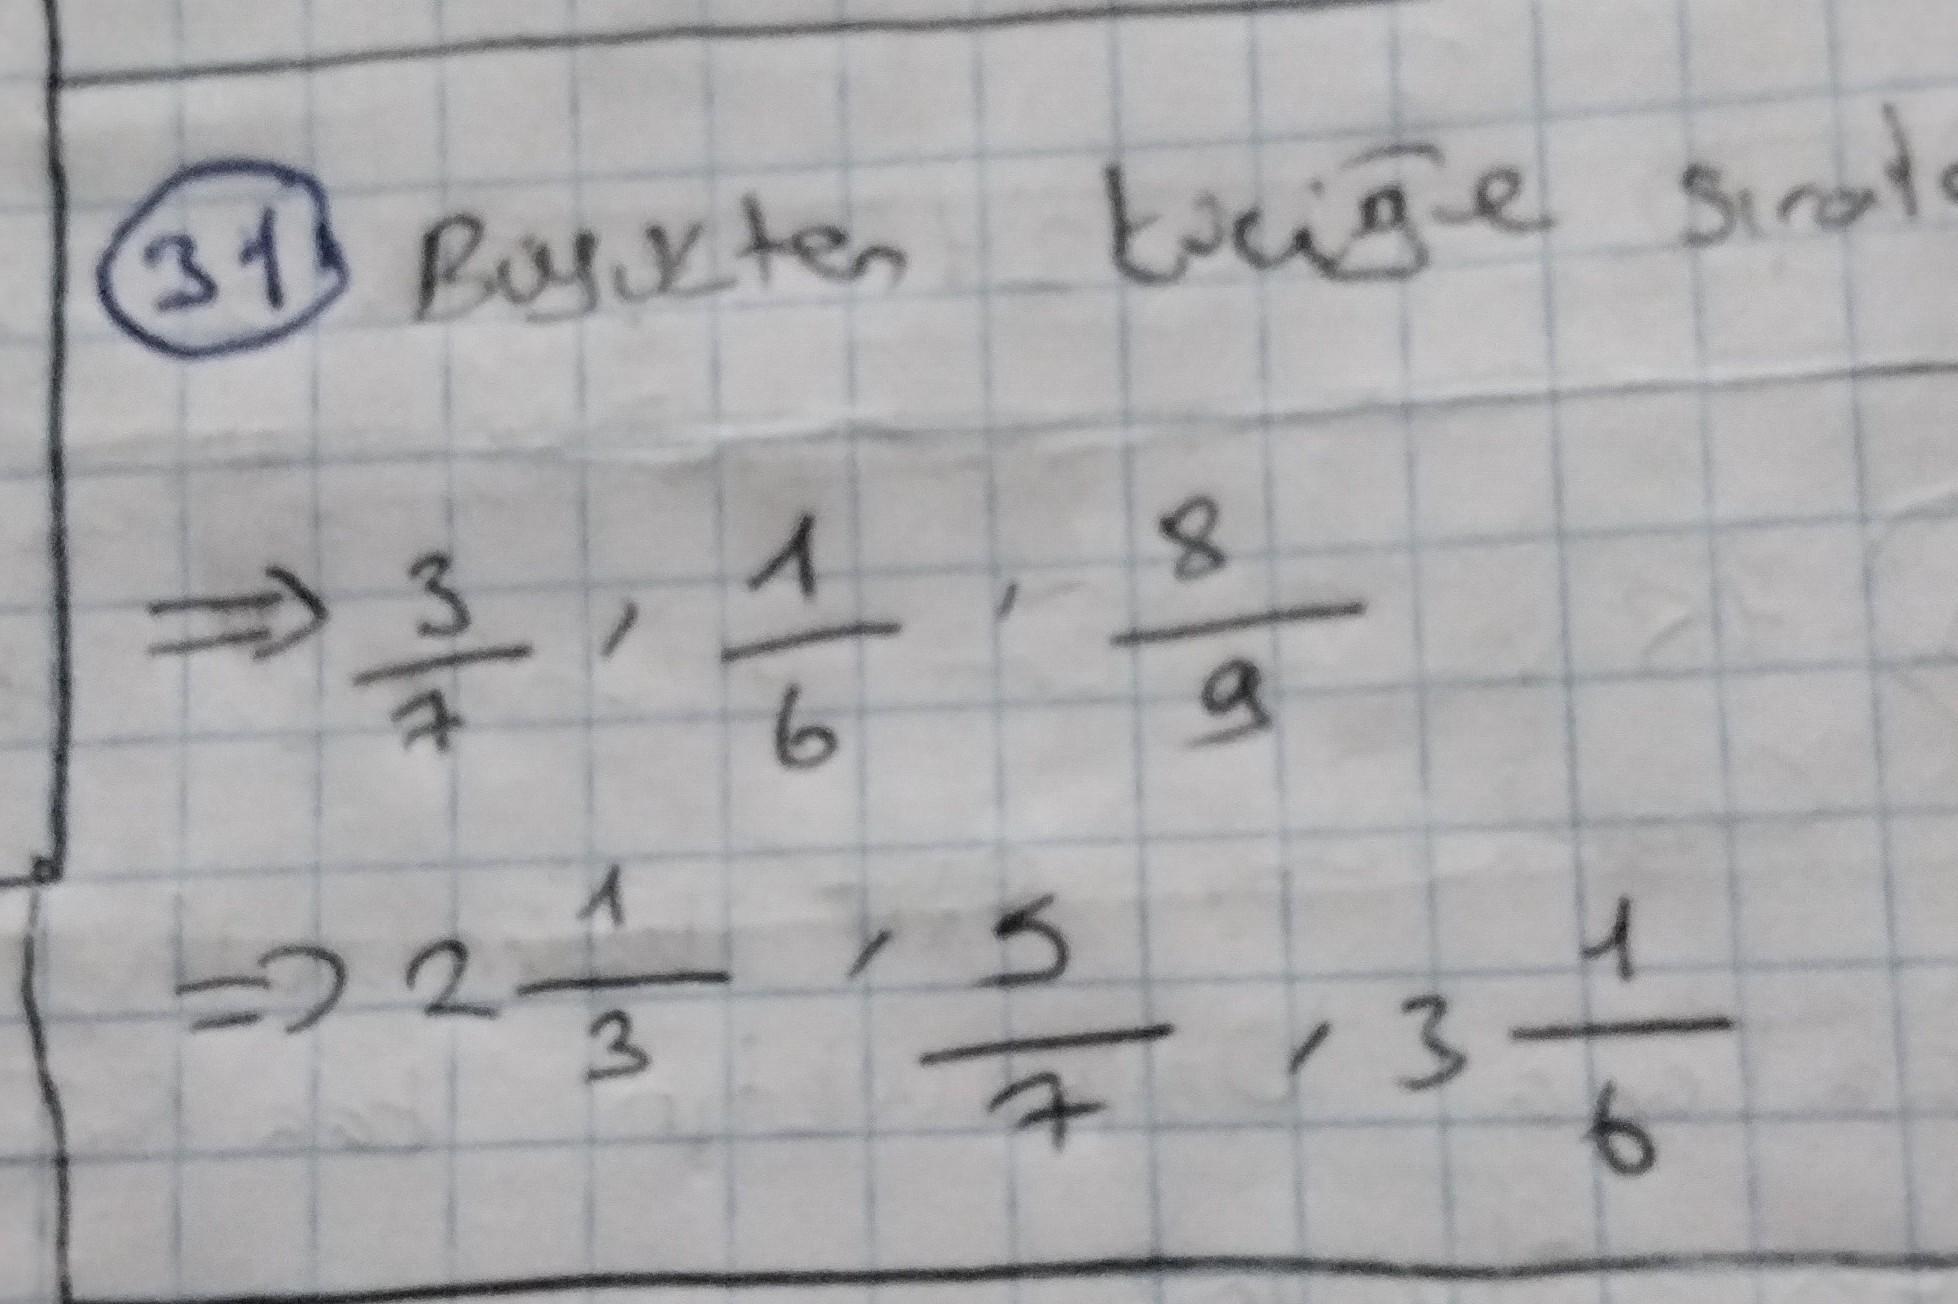 31 Büyükten küçüğe sırala
⇒ 3/7 , 1/6 , 8/9
⇒ 2 1/3 , 5/7 , 3 1/6